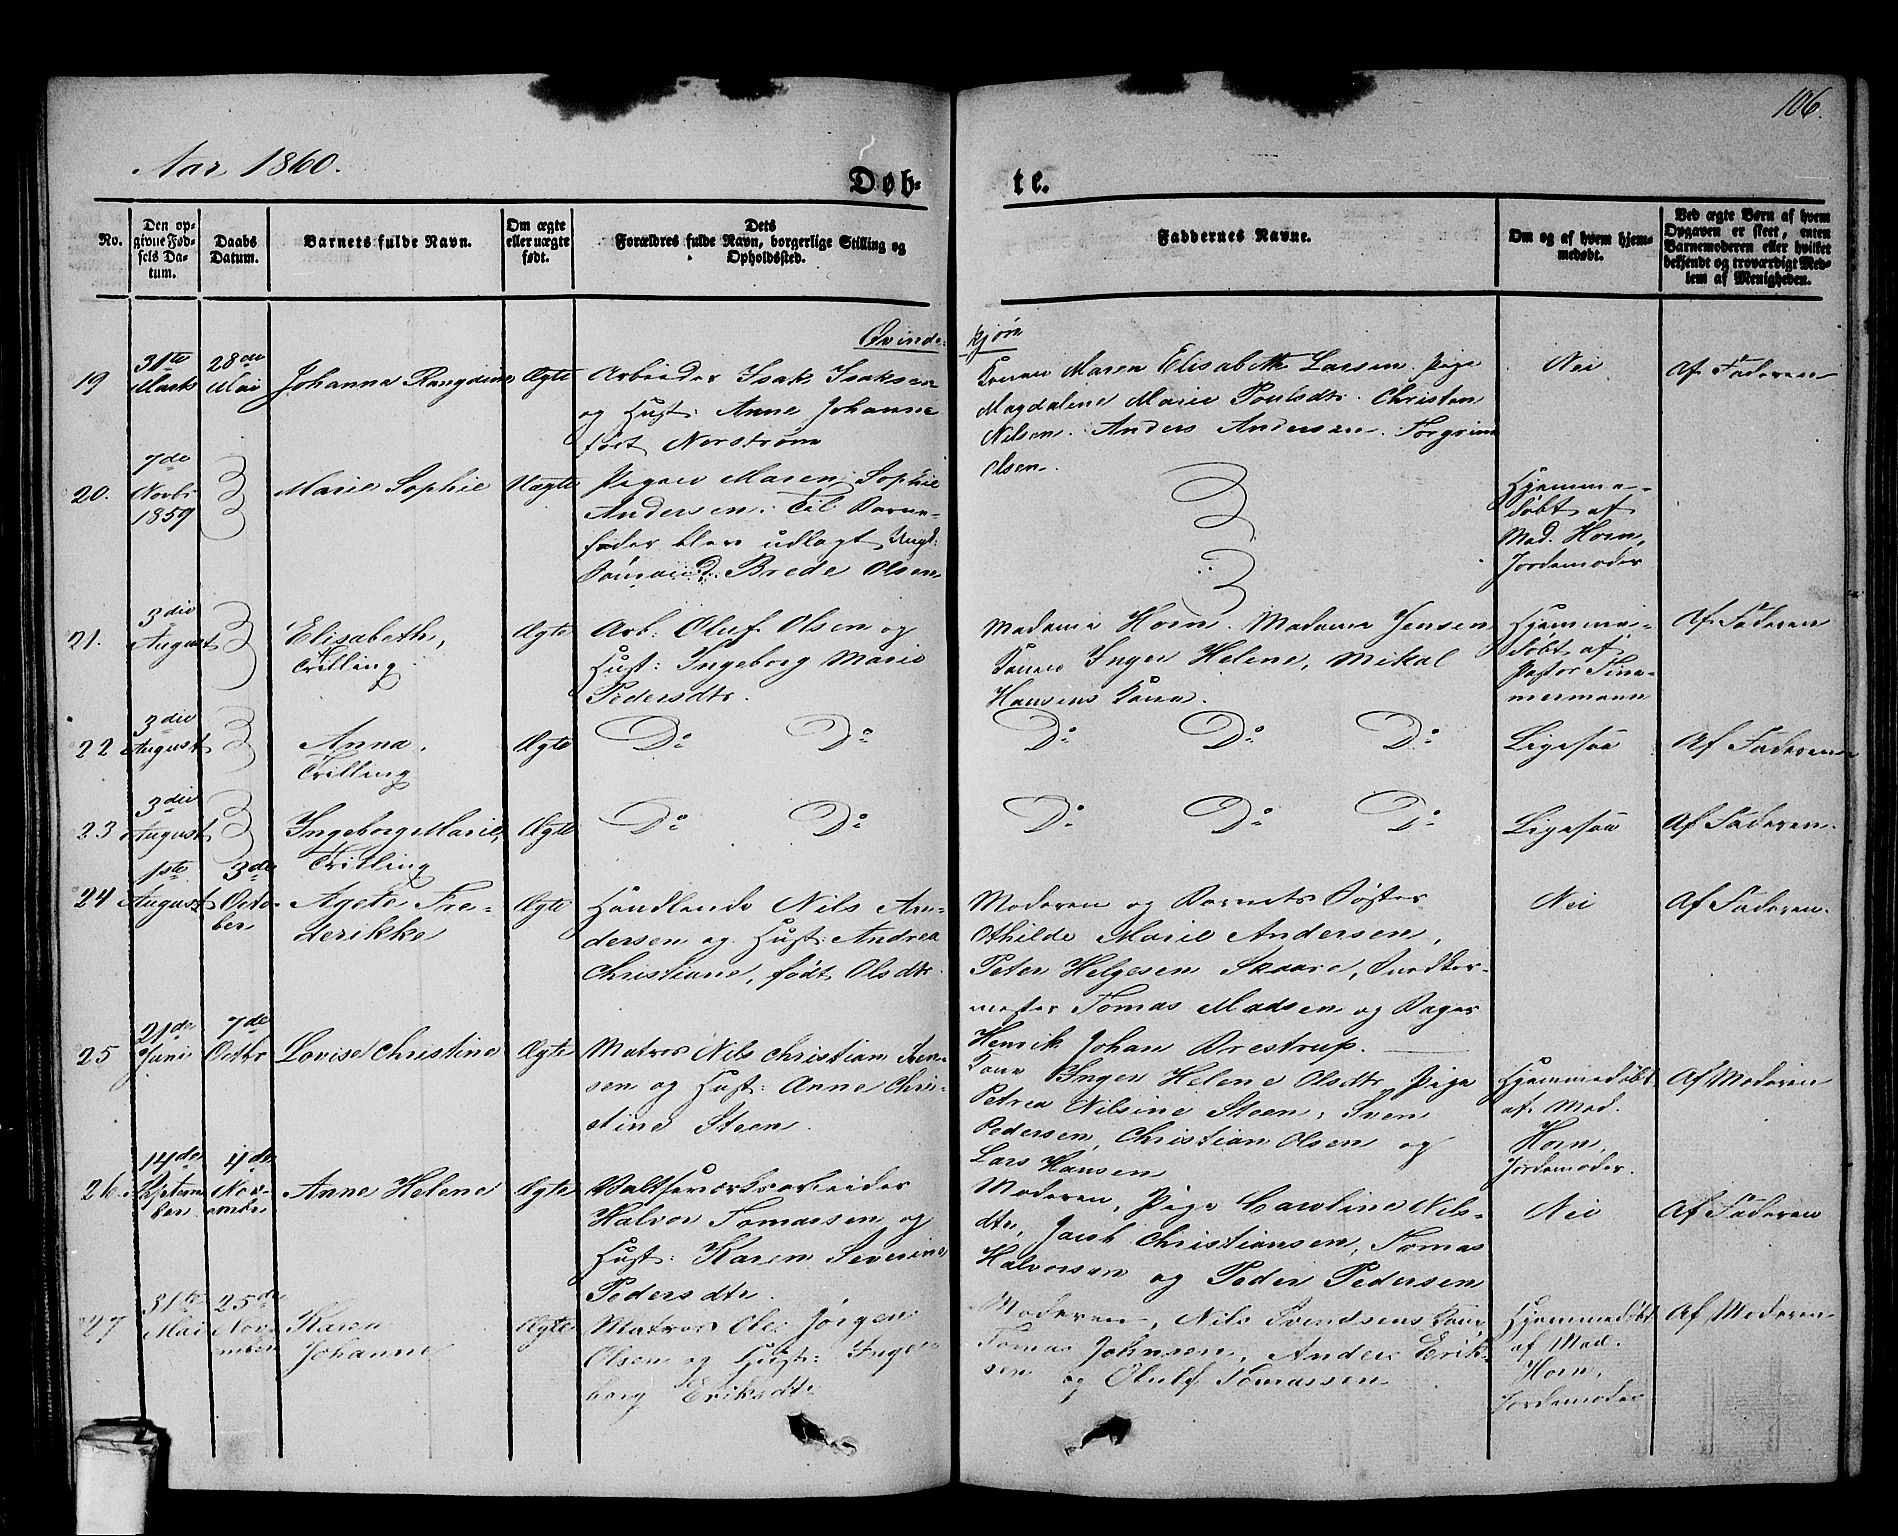 106.
Aar 1860.
Døb-
te.
No.
Den op-
givne Fød-
sels Da-
tum.
Daabs
Datum.
Barnets fulde Navn.
Om ægte
eller uægte
født.
Dets
Forældres fulde Navn, borgerlige Stilling og
Opholdssted.
Faddernes Navne.
Om og af hvem hjem-
medøbt.
Ved ægte Børn af hvem
Opgaven er skeet, enten
Barnemoderen eller hvilket
bekjendt og troværdigt Med-
lem af Menigheden.
Qvinde-
kjøn
19
31te
Marts
28de
Mai
Johanna
Ægte
Arbeider Isak Isaksen
og Hust: Anne Johanne
født Norstrøm
Konen Maren Elisabeth Larsen. Pige
Magdalene Marie Poulsdtr. Christen
Nilsen. Anders Andersen. Torgrim
Olsen.
Nei
Af Faderen
20.
7de
Novbr
1859
Marie Sophie
Uægte
Pigen Maren Sophie
Andersen. Til Barne-
fader blev udlagt Ungk:
Sømand Brede Olsen
Hjemme-
døbt af
Mad. Horn,
Jordemoder
21.
3die
August
Elisabeth,
Trilling
Ægte
Arb: Oluf Olsen og
Hust: Ingeborg Marie
Pedersdtr.
Madame Horn. Madame Jensen
Konen Inger Helene, Mikal
Hansens Kone.
Hjemme-
døbt af
Pastor Tim-
mermann
Af Faderen
22
3die
August
Anna,
Trilling
Ægte
Do Do
Do Do Do
Ligesaa
Af Faderen
23
3die
August
Ingeborg Marie,
Trilling
Ægte
Do Do
Do Do Do
Ligesaa
Af Faderen.
24
1ste
August
3de
Octo-
ber
Agete Fre-
derikke
Ægte
Handlende Nils An-
dersen og Hust: Andrea
Christiane, født Olsdtr.
Moderen og Barnets Søster
Othilde Marie Andersen,
Peter Helgesen Skaare, Snedker-
mester Tomas Madsen og Bager
Henrik Johan Brestrup.
Nei
Af Faderen.
25
21de
Juni
7de
Octbr
Lovise Christine
Ægte
Matros Nils Christian Sven-
sen og Hust: Anne Chri-
stine Steen.
Kone Inger Helene Olsdtr, Pige
Petrea Nilsine Steen, Sven
Pedersen, Christian Olsen og
Lars Hansen
Hjemmedøbt
af Mad.
Horn,
Jordemoder.
Af Moderen
26.
14de
Septem-
ber
4de
Nov-
embr
Anne Helene
Ægte
Valseværksarbeider
Halvor Tomassen og
Hust: Karen Severine
Pedersdtr.
Moderen, Pige Caroline Nils-
dtr, Jacob Christiansen, Tomas
Halvorsen og Peder Pedersen
Nei
Af Faderen
27
31te
Mai
25de
Nov-
ember
Karen
Johanne
Ægte
Matros Ole Jörgen
Olsen og Hust: Inge-
borg Eriksdtr
Moderen, Nils Svendsens Kone
Tomas Johnsen, Anders Erik-
sen og Oluf Tomassen
Hjemmedøbt
af Mad.
Horn,
Jordemoder
Af Moderen